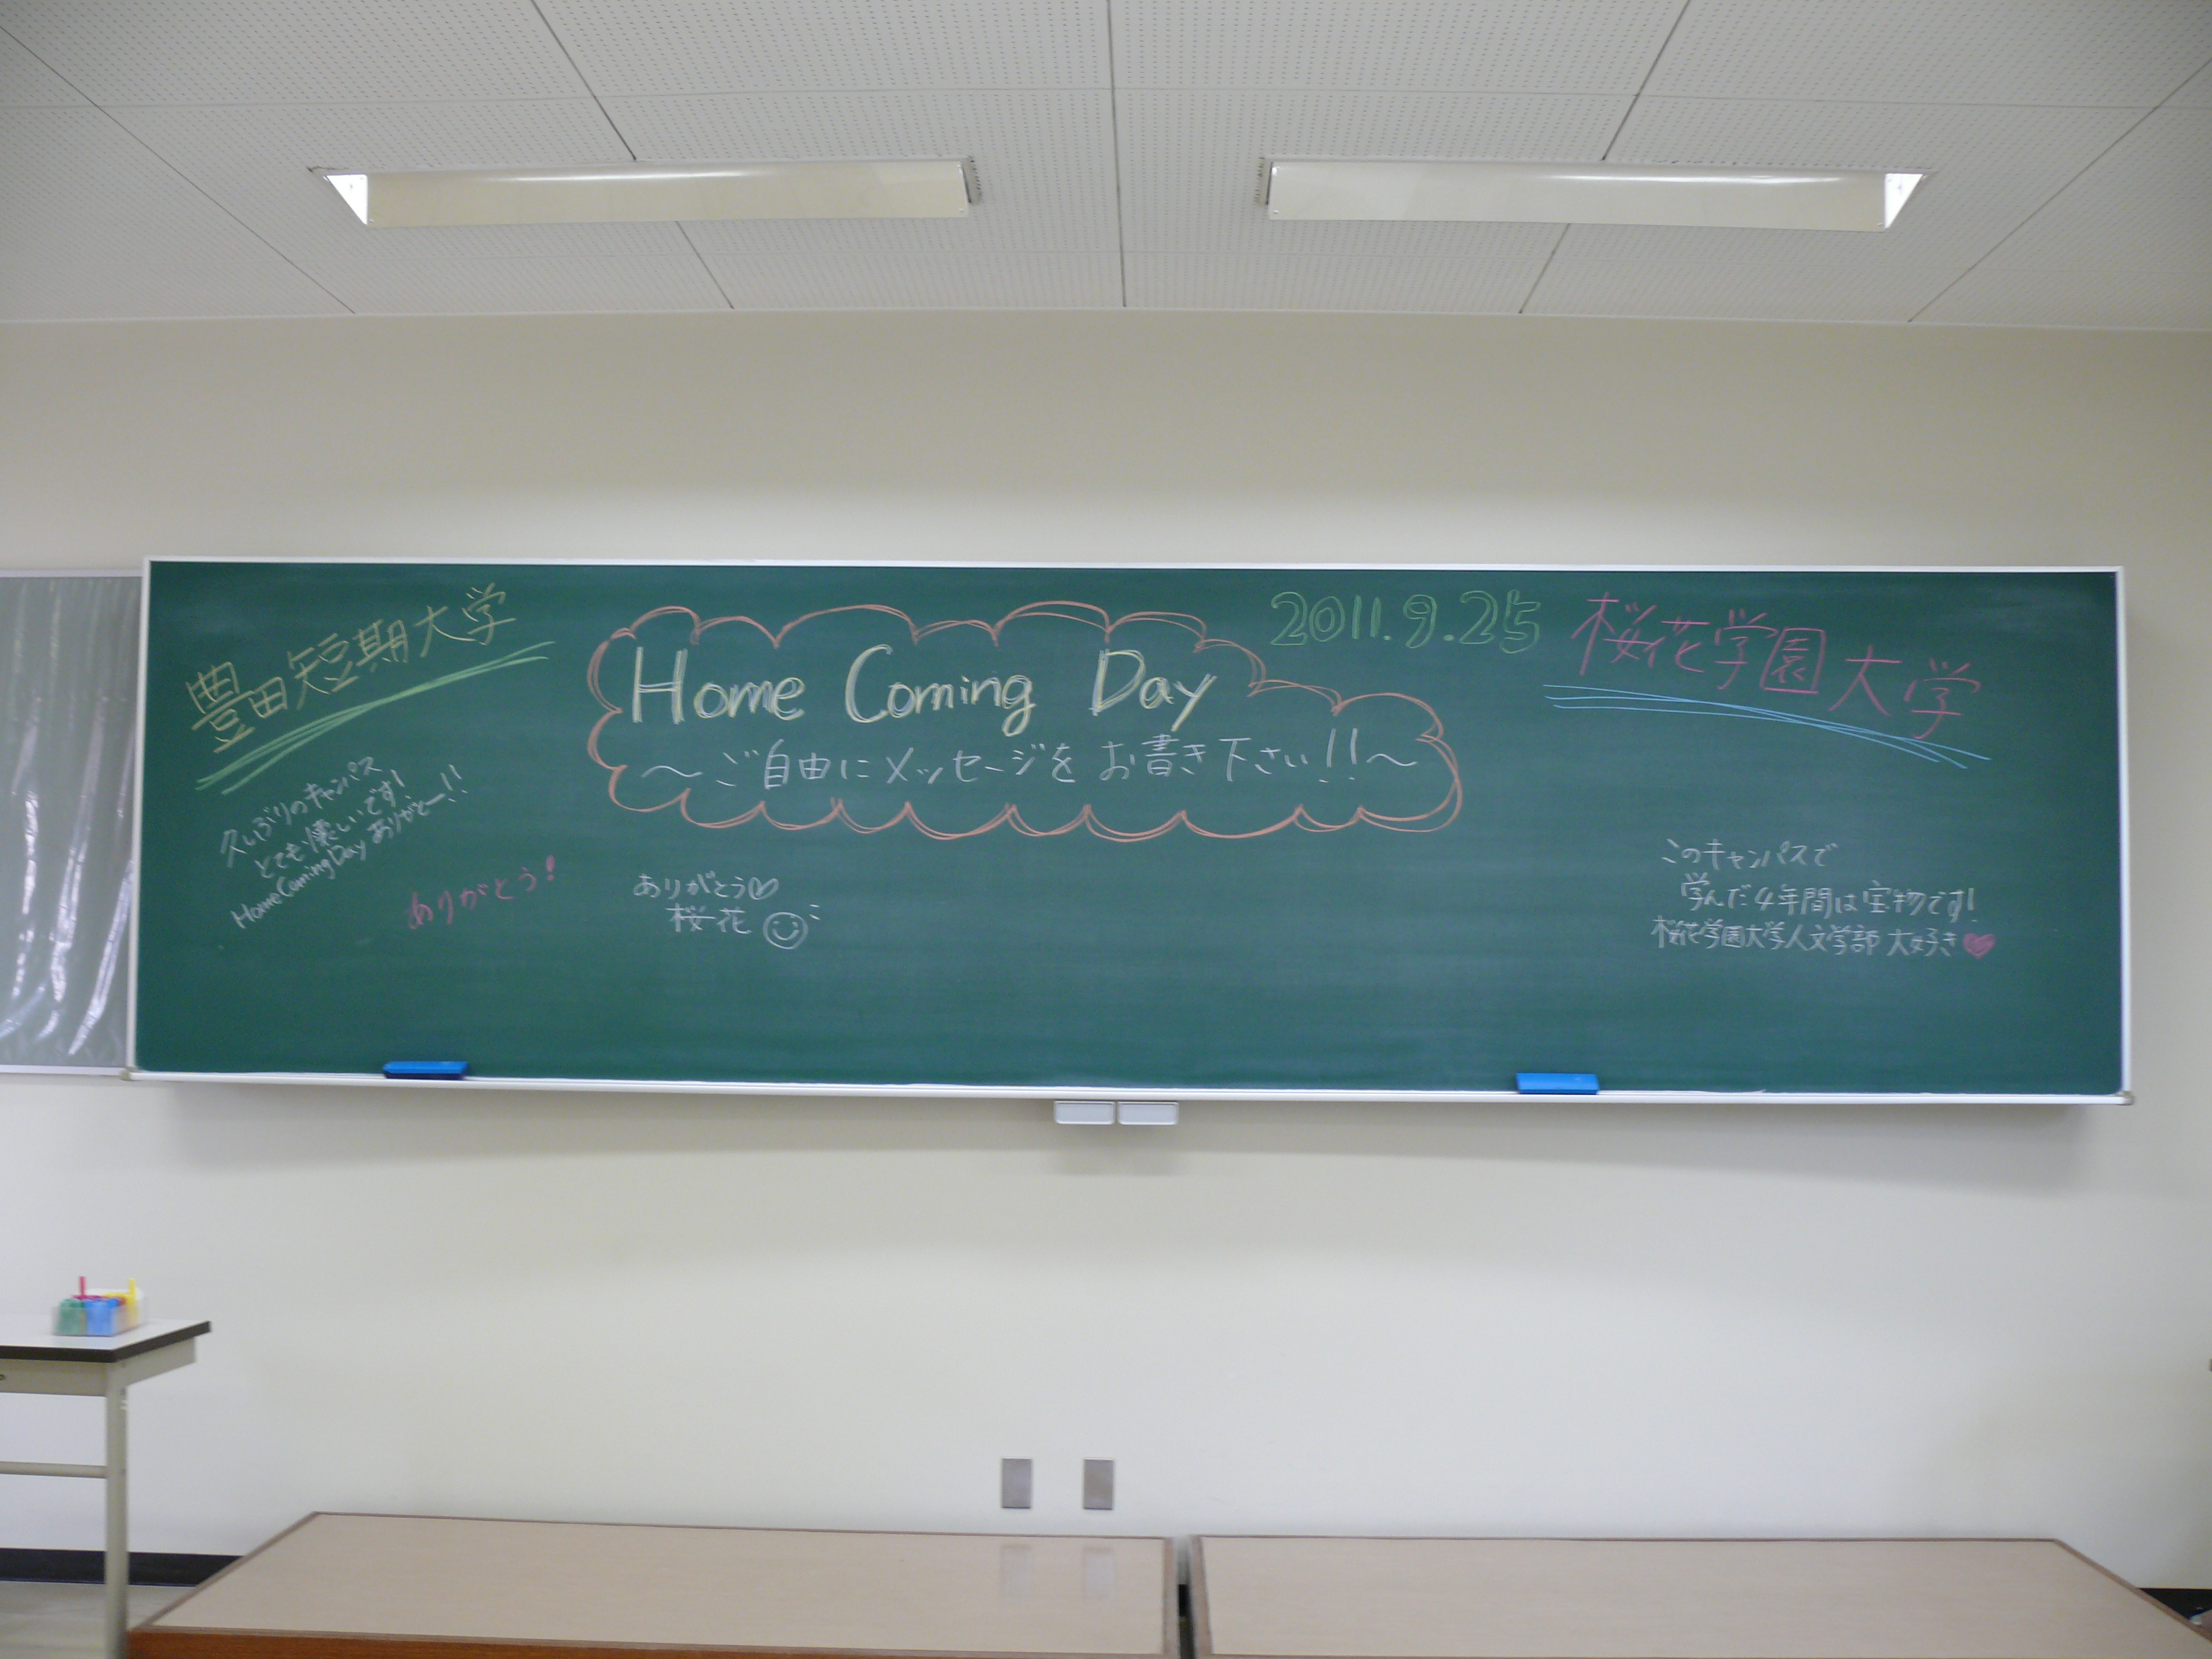 豊田短期大学
久しぶりのキャンパス
とても懐しいです!
Home Coming Day ありがとー!!
ありがとう!
Home Coming Day
～ご自由にメッセージをお書き下さい!!～
ありがとう♡
桜花
2011.9.25
桜花学園大学
このキャンパスで
学んだ4年間は宝物です!
桜花学園大学人文学部 大好き♥